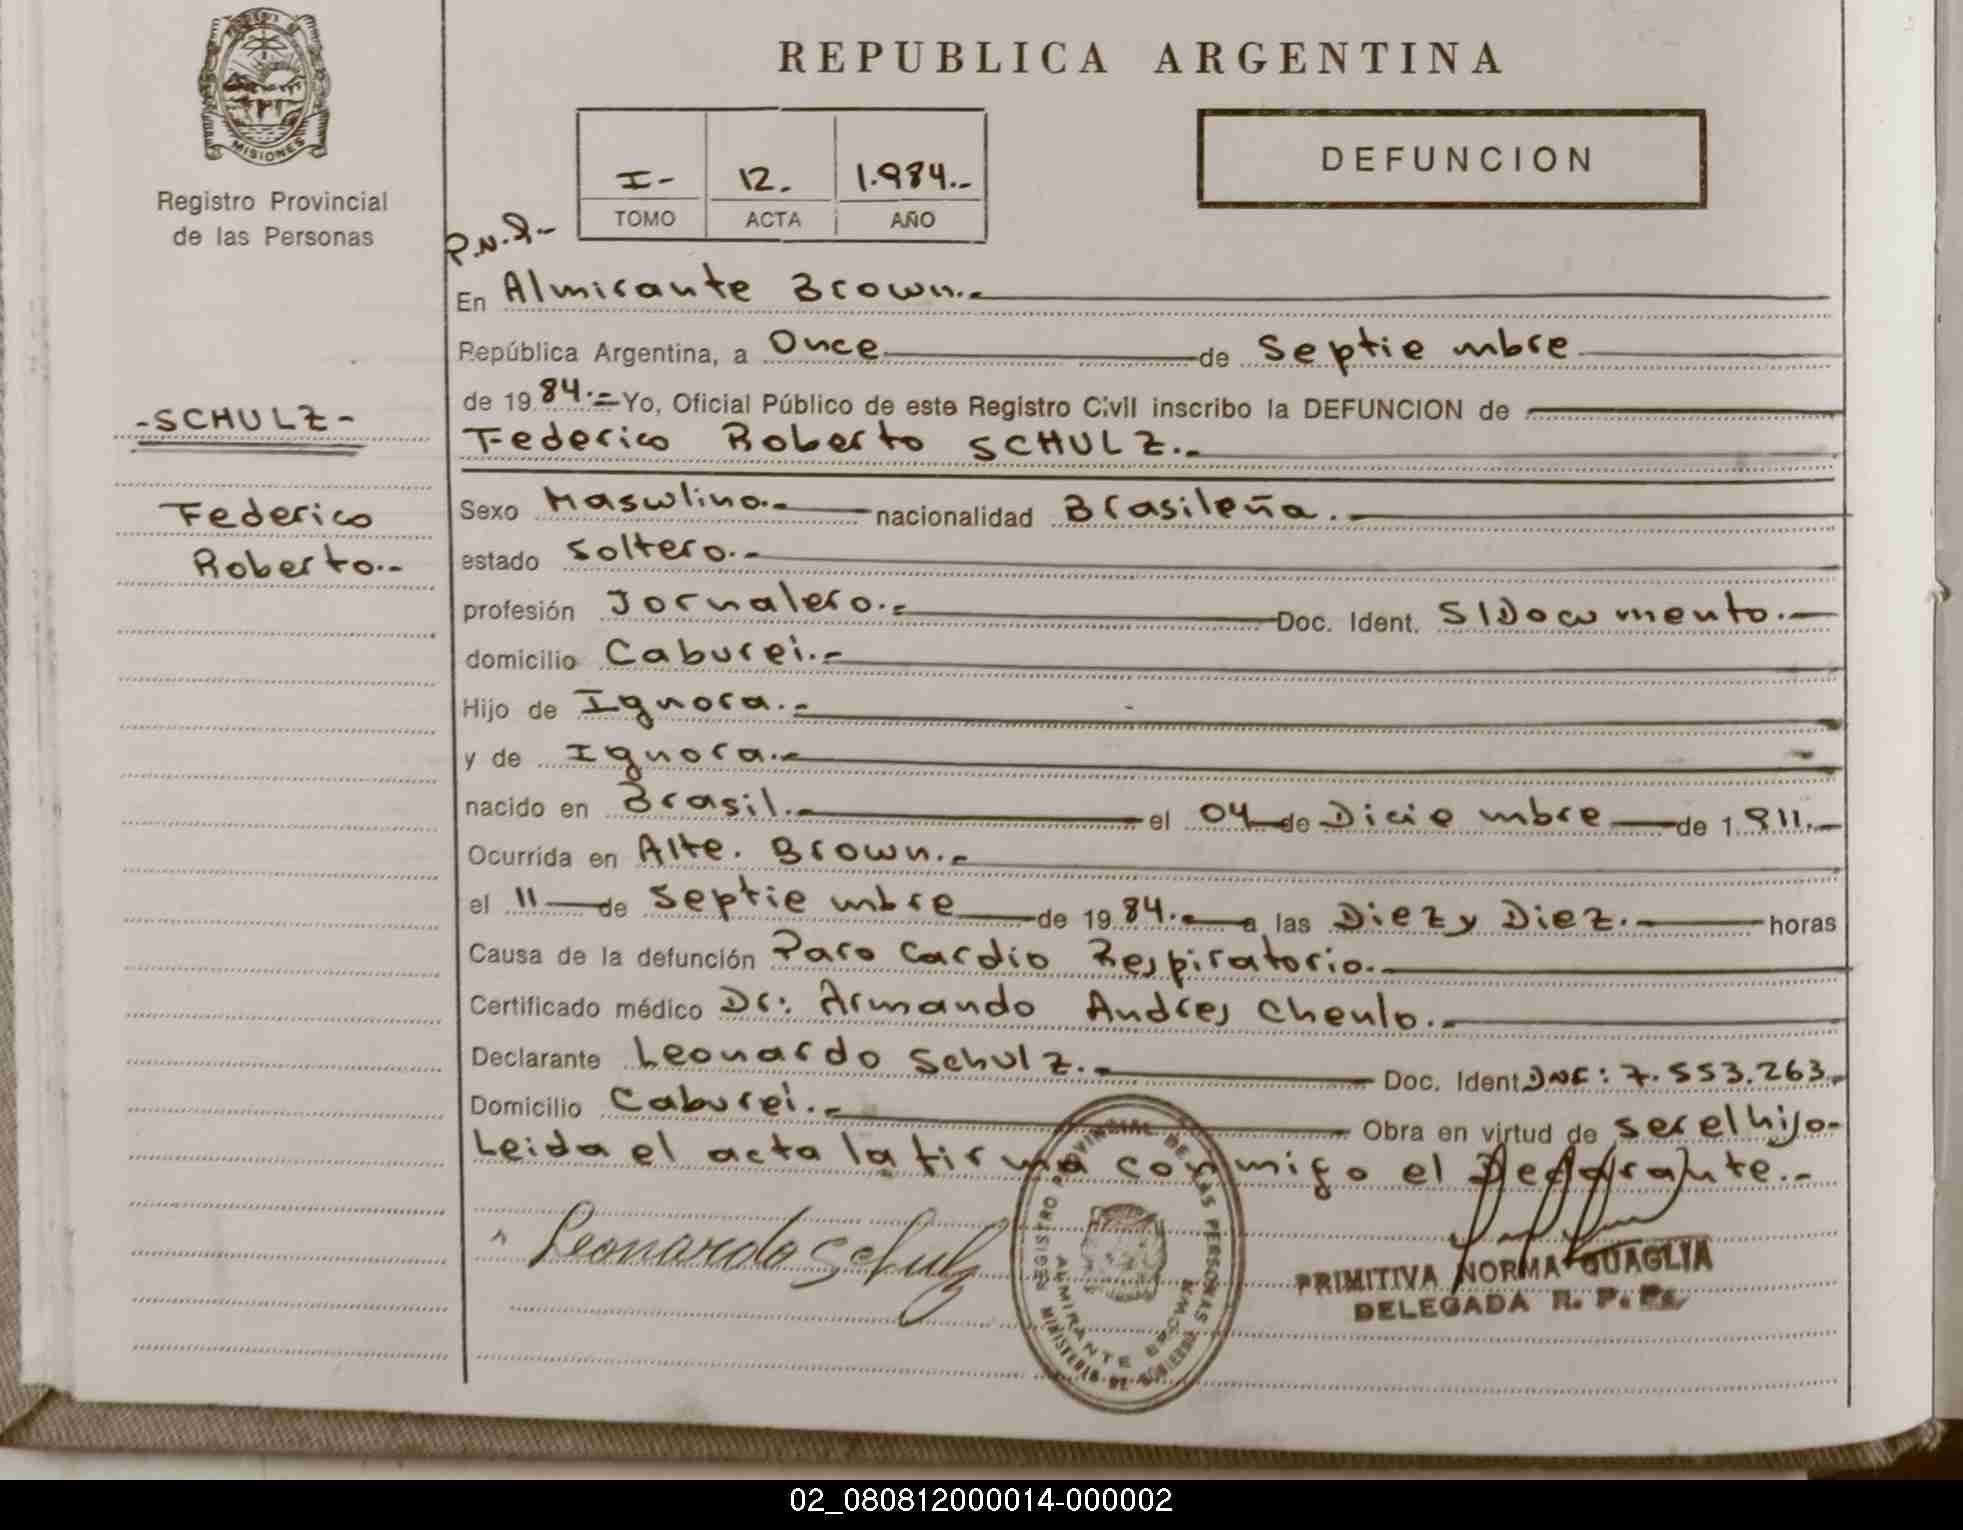 REPUBLICA ARGENTINA
MISIONES
Registro Provincial
de las Personas
I- 12.- 1.984.-
TOMO ACTA AÑO
DEFUNCION
-SCHULZ-
Federico
Roberto.-
En Almirante Brown.-
República Argentina, a Once de Septiembre
de 1984.- Yo, Oficial Público de este Registro Civil inscribo la DEFUNCION de
Federico Roberto SCHULZ.-
Sexo Masculino.- nacionalidad Brasileña.-
estado Soltero.-
profesión Jornalero.- Doc. Ident. S/Documento.-
domicilio Caburei.-
Hijo de Ignora.-
y de Ignora.-
nacido en Brasil.- el 04 de Diciembre de 1.911.-
Ocurrida en Alte. Brown.-
el 11 de Septiembre de 1984.- a las Diez y Diez.- horas
Causa de la defunción Paro Cardio Respiratorio.-
Certificado médico Dr: Armando Andres Chenlo.-
Declarante Leonardo Schulz.- Doc. Ident. : 7.553.263.-
Domicilio Caburei.- Obra en virtud de ser el hijo-
Leida el acta la firma conmigo el Declarante.-
Leonardo Schulz
REGISTRO PROVINCIAL DE LAS PERSONAS
MINISTERIO DE GOBIERNO
ALMIRANTE BROWN
PRIMITIVA NORMA QUAGLIA
DELEGADA R. P. P.
02_080812000014-000002